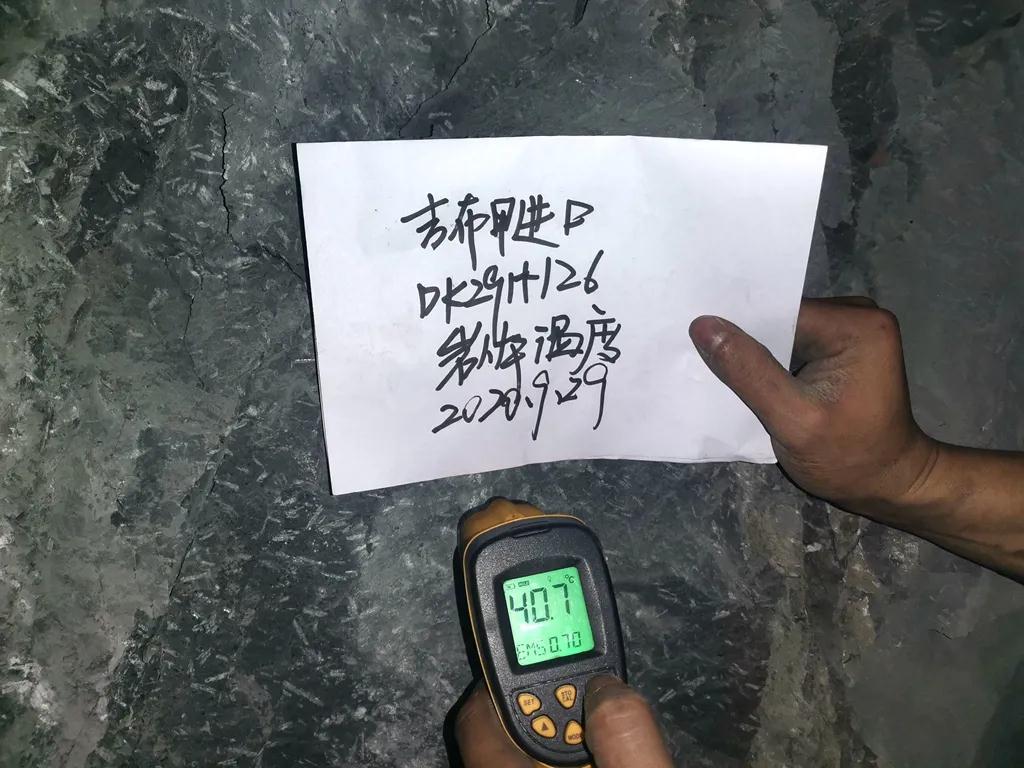 吉布甲进口
DK291+126
岩体温度
2020.9.29
HOLD
°C
40.7
EMS 0.70
SET
STO
CAL
▲
MODE